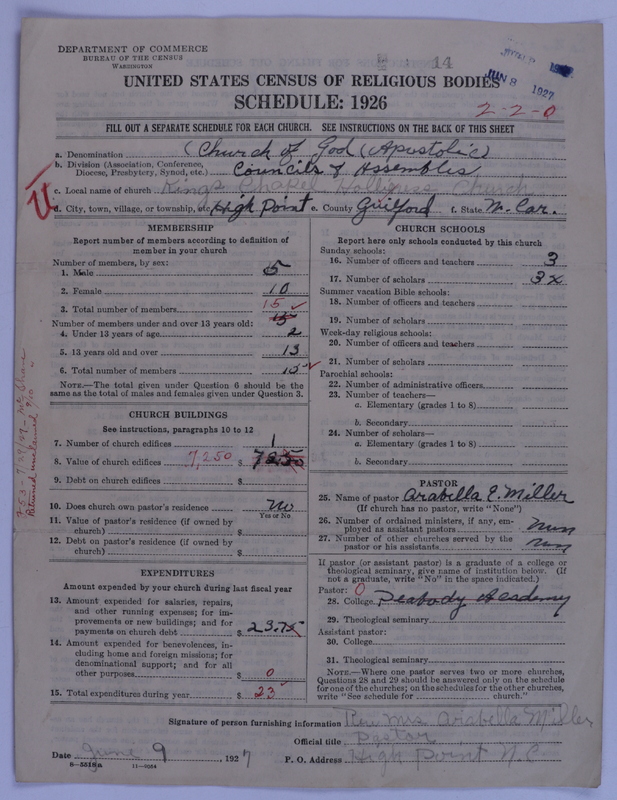 DEPARTMENT OF COMMERCE
BUREAU OF THE CENSUS
WASHINGTON
14
JUN 8 1927
UNITED STATES CENSUS OF RELIGIOUS BODIES
SCHEDULE: 1926
2-2-0
FILL OUT A SEPARATE SCHEDULE FOR EACH CHURCH. SEE INSTRUCTIONS ON THE BACK OF THIS SHEET
a. Denomination (Church of God (Apostolic)
b. Division (Association, Conference, Diocese, Presbytery, Synod, etc.) Councils of Assemblis
c. Local name of church Kings Chapel Holliness Church
d. City, town, village, or township, etc. High Point e. County Guilford f. State N. Car.
MEMBERSHIP
Report number of members according to definition of
member in your church
Number of members, by sex:
1. Male 5
2. Female 10
3. Total number of members 15
15
Number of members under and over 13 years old:
4. Under 13 years of age 2
5. 13 years old and over 13
6. Total number of members 15
NOTE.—The total given under Question 6 should be the
same as the total of males and females given under Question 3.
CHURCH BUILDINGS
See instructions, paragraphs 10 to 12
7. Number of church edifices 1
8. Value of church edifices 7,250 $ 7250
9. Debt on church edifices $
10. Does church own pastor's residence No
Yes or No
11. Value of pastor's residence (if owned by
church) $
12. Debt on pastor's residence (if owned by
church) $
EXPENDITURES
Amount expended by your church during last fiscal year
13. Amount expended for salaries, repairs,
and other running expenses; for im-
provements or new buildings; and for
payments on church debt $ 23.75
14. Amount expended for benevolences, in-
cluding home and foreign missions; for
denominational support; and for all
other purposes $ 0
15. Total expenditures during year $ 23
CHURCH SCHOOLS
Report here only schools conducted by this church
Sunday schools:
16. Number of officers and teachers 3
17. Number of scholars 3x
Summer vacation Bible schools:
18. Number of officers and teachers
19. Number of scholars
Week-day religious schools:
20. Number of officers and teachers
21. Number of scholars
Parochial schools:
22. Number of administrative officers
23. Number of teachers—
a. Elementary (grades 1 to 8)
b. Secondary
24. Number of scholars—
a. Elementary (grades 1 to 8)
b. Secondary
PASTOR
25. Name of pastor Arabella E. Miller
(If church has no pastor, write "None")
26. Number of ordained ministers, if any, em-
ployed as assistant pastors
27. Number of other churches served by the
pastor or his assistants
If pastor (or assistant pastor) is a graduate of a college or
theological seminary, give name of institution below. (If
not a graduate, write "No" in the space indicated.)
Pastor: 0
28. College Peabody Academy
29. Theological seminary
Assistant pastor:
30. College
31. Theological seminary
NOTE.—Where one pastor serves two or more churches,
Questions 28 and 29 should be answered only on the schedule
for one of the churches; on the schedules for the other churches,
write "See schedule for church."
Signature of person furnishing information Rev Mrs Arabella Miller
Official title Pastor
Date June 9, 1927 P. O. Address High Point N.C
8-5518a 11-9084
Returned unclaimed 9/10